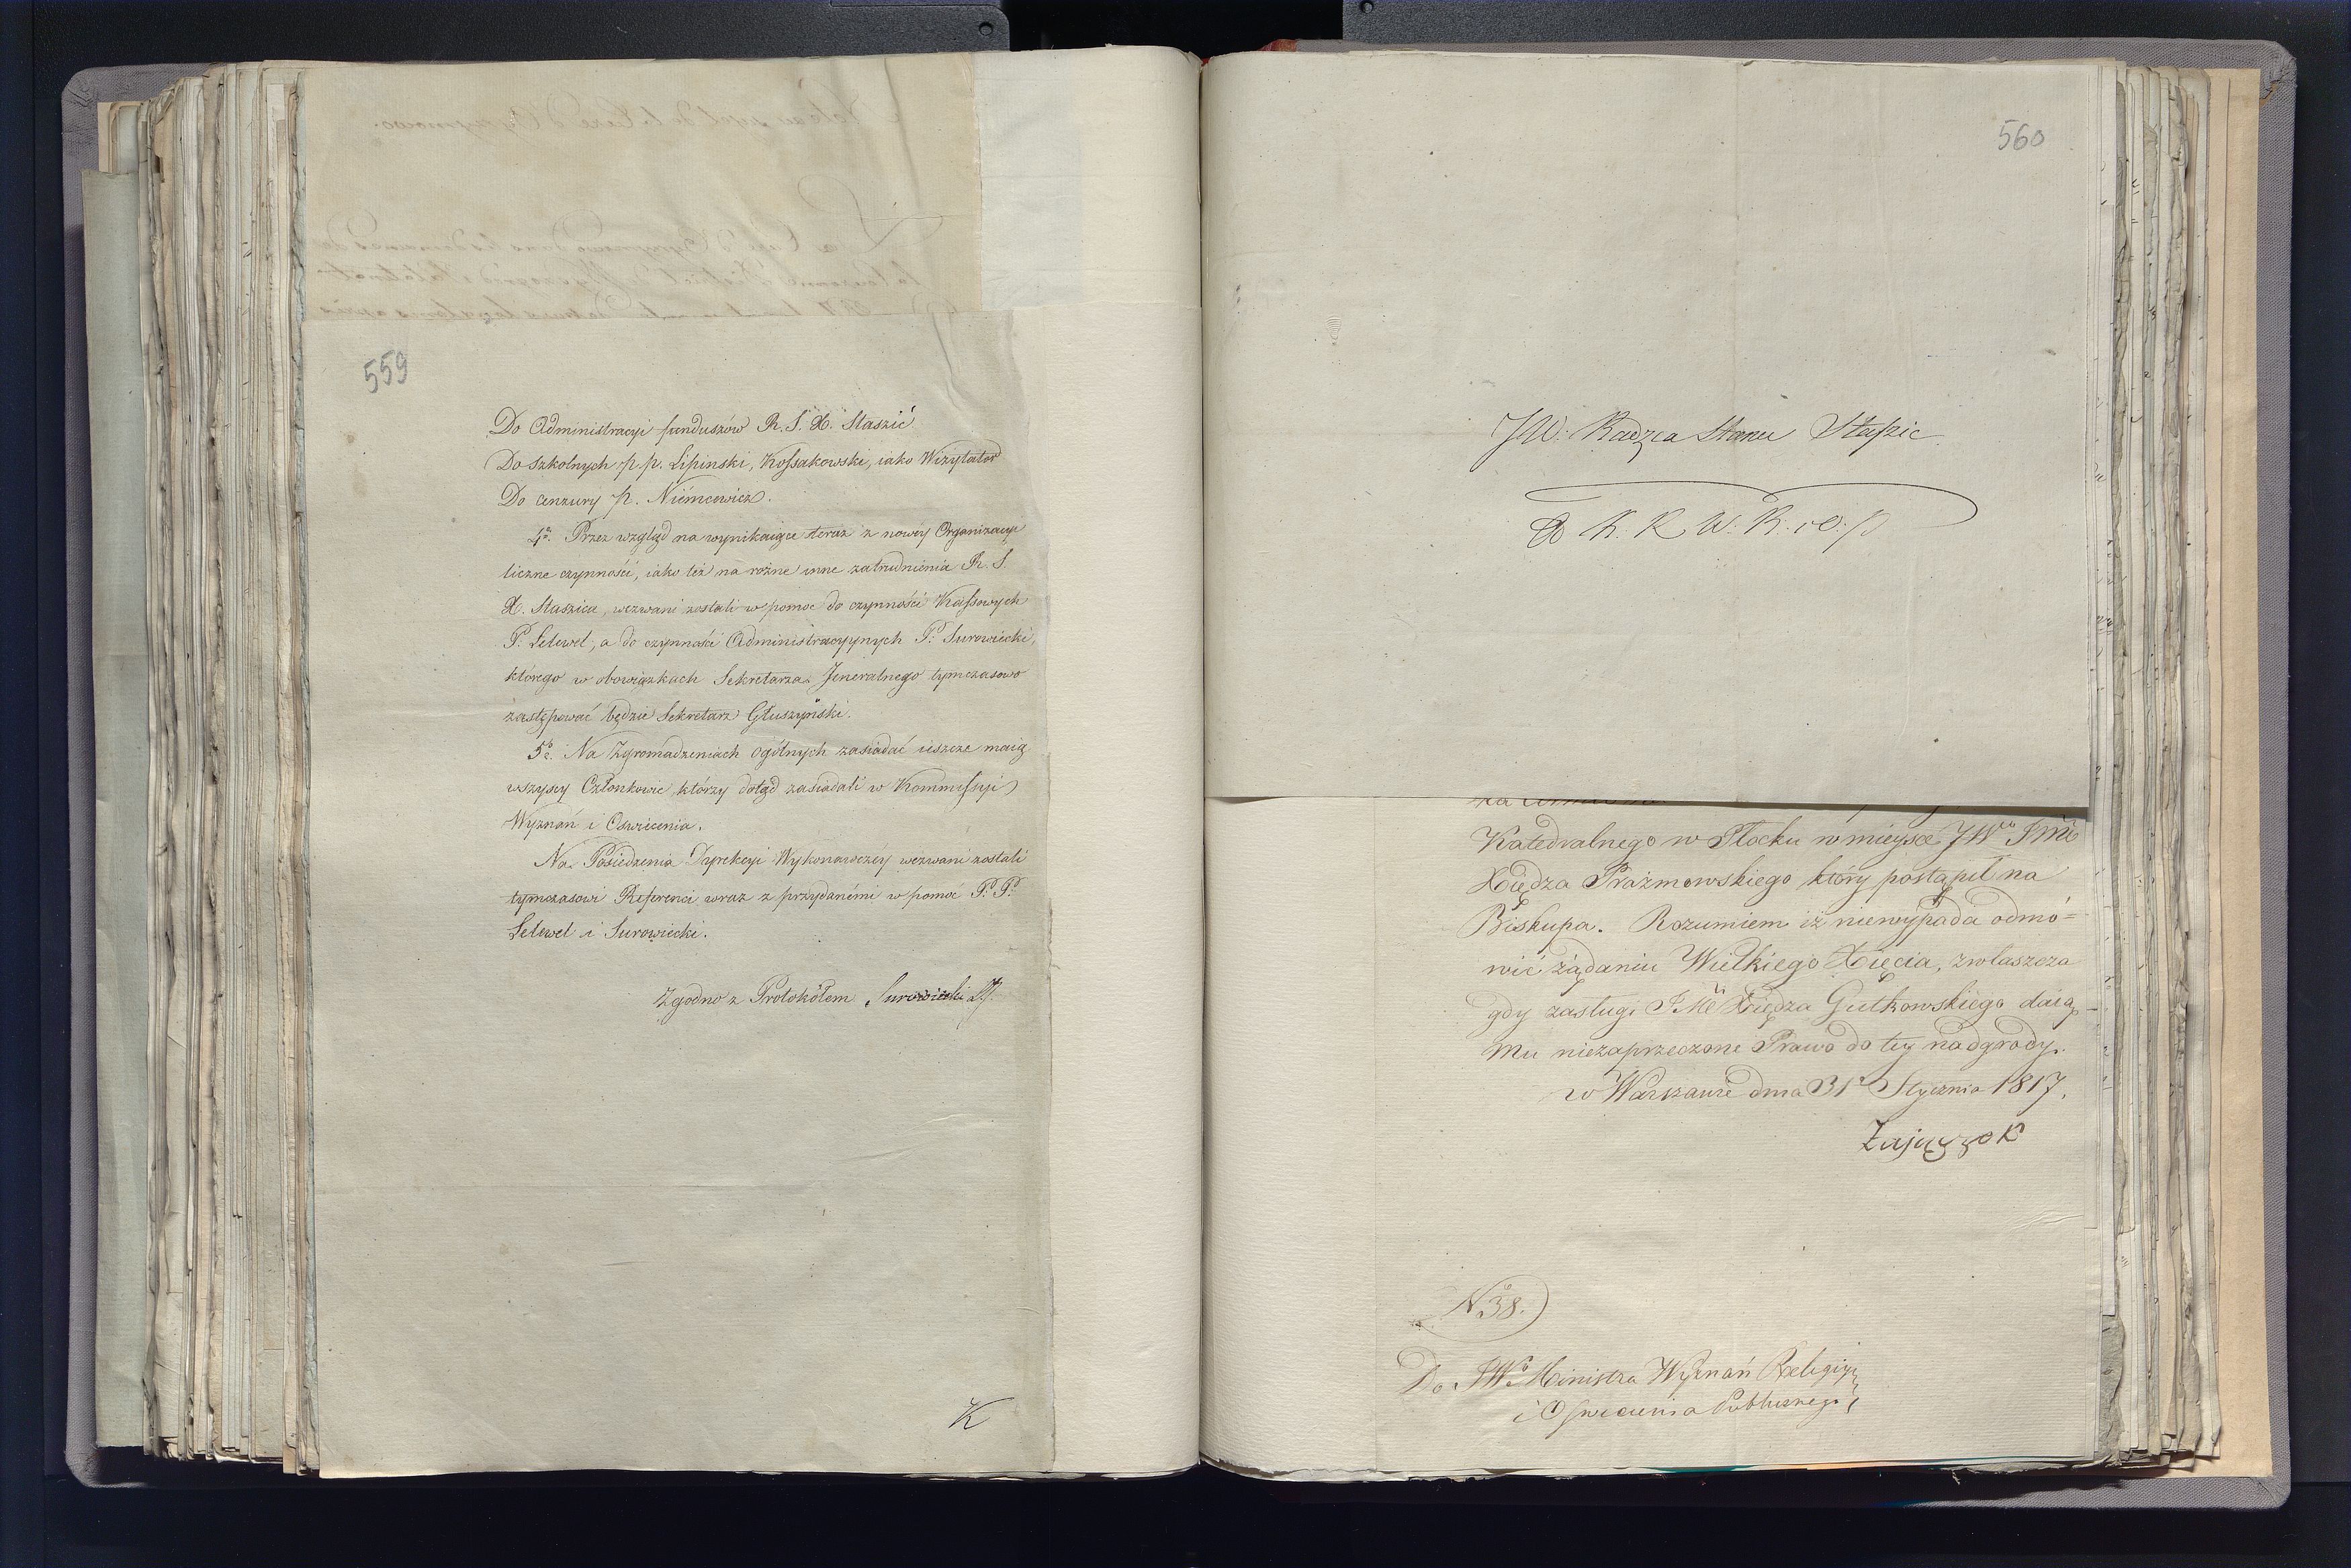 559
Do Administracyi funduszów R. S. X. Staszic
Do szkolnych p.p. Lipinski, Kossakowski, iako Wizytator
Do cenzury p. Niemcewicz.
4º. Przez wzgląd na wynikaiące teraz z nowey Organizacyi
liczne czynności, iako też na rożne inne zatrudnienia R. S.
X. Staszica, wezwani zostali w pomoc do czynności Kassowych
P. Lelewel, a do czynności Administracyynych P. Surowiecki,
którego w obowiązkach Sekretarza Jeneralnego tymczasowo
zastępować będzie Sekretarz Głuszyński.
5º. Na Zgromadzeniach ogólnych zasiadać ieszcze maią
wszyscy Członkowie, którzy dotąd zasiadali w Kommissyi
Wyznań i Oswiecenia.
Na Posiedzenia Dyrekcyi Wykonawczéy wezwani zostali
tymczasowi Referenci wraz z przydanémi w pomoc P. P.
Lelewel i Surowiecki.
Zgodno z Protokółem Surowiecki
K
560
JW. Radzca Stanu Staszic
K. R. W. R. i O. p
Katedralnego w Płocku w mieysce JWº JMć
Xiędza Prażmowskiego który postąpił na
Biskupa. Rozumiem iż niewypada odmó=
wić żądaniu Wielkiego Xięcia, zwłaszcza
gdy zasługi JMć Xiędza Gutkowskiego daią
Mu niezaprzeczone Prawo do tey nadgrody.
w Warszawie dnia 31º Stycznia 1817.
Zajączek
Nº 38.
Do JWº Ministra Wyznań Religiy:
i Oswiecenia Publicznego